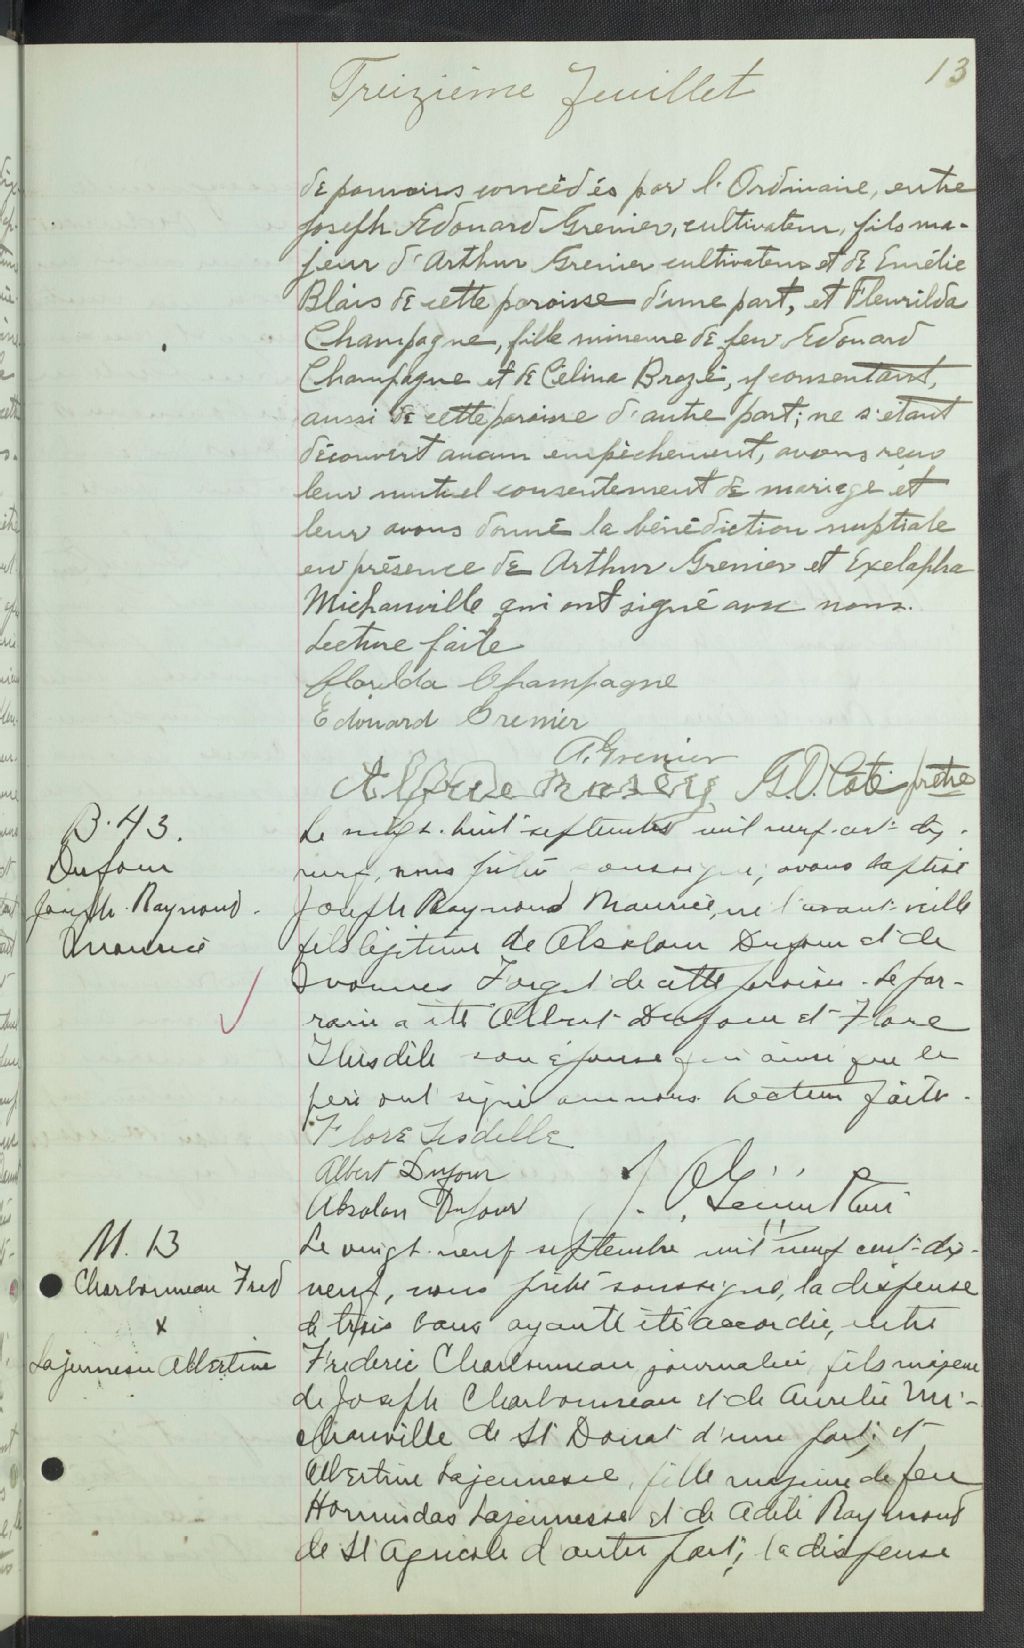 13
Treizième feuillet
de pouvoirs concédés par l'Ordinaire, entre
Joseph Edouard Grenier, cultivateur, fils ma-
jeur d'Arthur Grenier cultivateur et de Emélie
Blais de cette paroisse d'une part, et Fleurilda
Champagne, fille mineure de feu Edouard
Champagne et de Célina Brazé, y consentant,
aussi de cette paroisse d'autre part; ne s'étant
découvert aucun empêchement, avons reçu
leur mutuel consentement de mariage et
leur avons donné la bénédiction nuptiale
en présence de Arthur Grenier et Exelapha
Michauville qui ont signé avec nous.
Lecture faite
Florilda Champagne
Edouard Grenier
A. Grenier
G.O. Coté ptre
B. 43.
Dufour
Joseph Raynond.
Maurice
Le vingt-huit septembre mil neuf-cent-dix-
neuf, nous prêtre soussigné, avons baptisé
Joseph Raymond Maurice, né l'avant-veille
fils légitime de Absalon Dufour et de
Yvonnes Forget de cette paroisse. Le par-
rain a été Albert Dufour et Flore
son épouse qui ainsi que le
père ont signé avec nous. Lecture faite.
Flore Lisdelle
Albert Dufour
Absolon Dufour
M. 13
Charbonneau Fred
x
Lajeunesse Albertine
Le vingt-neuf septembre mil neuf cent-dix-
neuf, nous prêtre soussigné, la dispense
de trois bans ayant été accordée, entre
Frederic Charbonneau journalier, fils majeur
de Joseph Charbonneau et de Aurelie Mi-
chauville de St Donat d'une part; et
Albertine Lajeunesse, fille majeure de feu
Hormisdas Lajeunesse et de Adele Raymond
de St Agricole d'autre part; la dispense